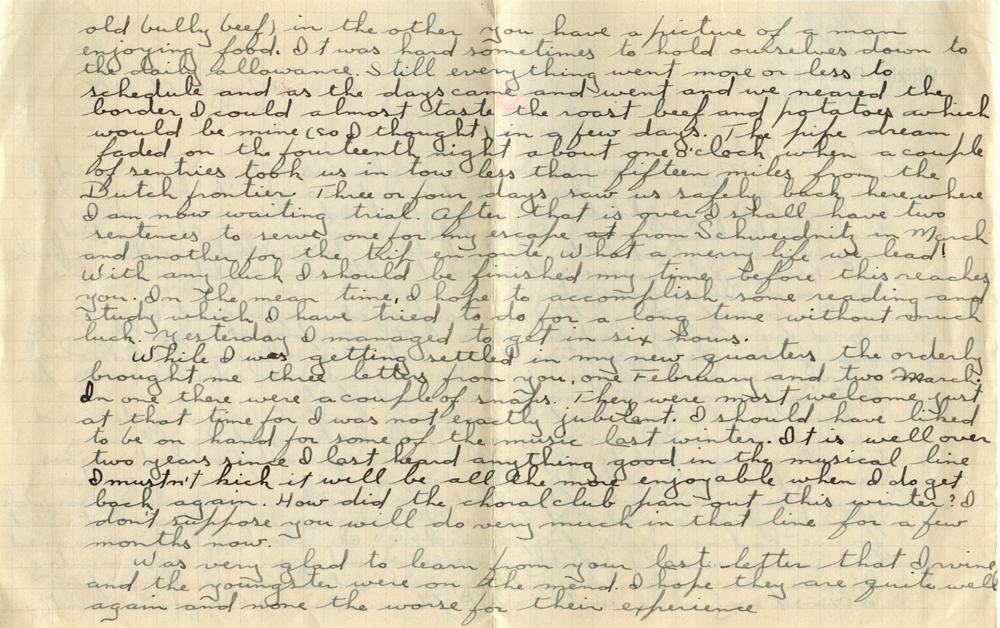 old bully beef) in the other you have a picture of a man
enjoying food. It was hard sometimes to hold ourselves down to
the daily allowance. Still everything went more or less to
schedule and as the days came and went and we neared the
border I could almost taste the roast beef and potatoes which
would be mine (so I thought) in a few days. The pipe dream
faded on the fourteenth night about one o'clock when a couple
of sentries took us in tow less than fifteen miles from the
Dutch frontier. Three or four days saw us safely back here where
I am now waiting trial. After that is over I shall have two
sentences to serve one for my escape from Schweidnitz in March
and another for the trip en route. What a merry life we lead!
With any luck I should be finished my time before this reaches
you. In the mean time, I hope to accomplish some reading and
study which I have tried to do for a long time without much
luck. Yesterday I managed to get in six hours.
While I was getting settled in my new quarters the orderly
brought me three letters from you, one February and two March.
In one there were a couple of snaps. They were most welcome just
at that time for I was not exactly jubilant. I should have liked
to be on hand for some of the music last winter. It is well over
two years since I last heard anything good in the musical line
I mustn't kick it will be all the more enjoyable when I do get
back again. How did the choral club pan out this winter? I
don't suppose you will do very much in that line for a few
months now.
Was very glad to learn from your last letter that Irvine
and the youngster were on the mend. I hope they are quite well
again and none the worse for their experience